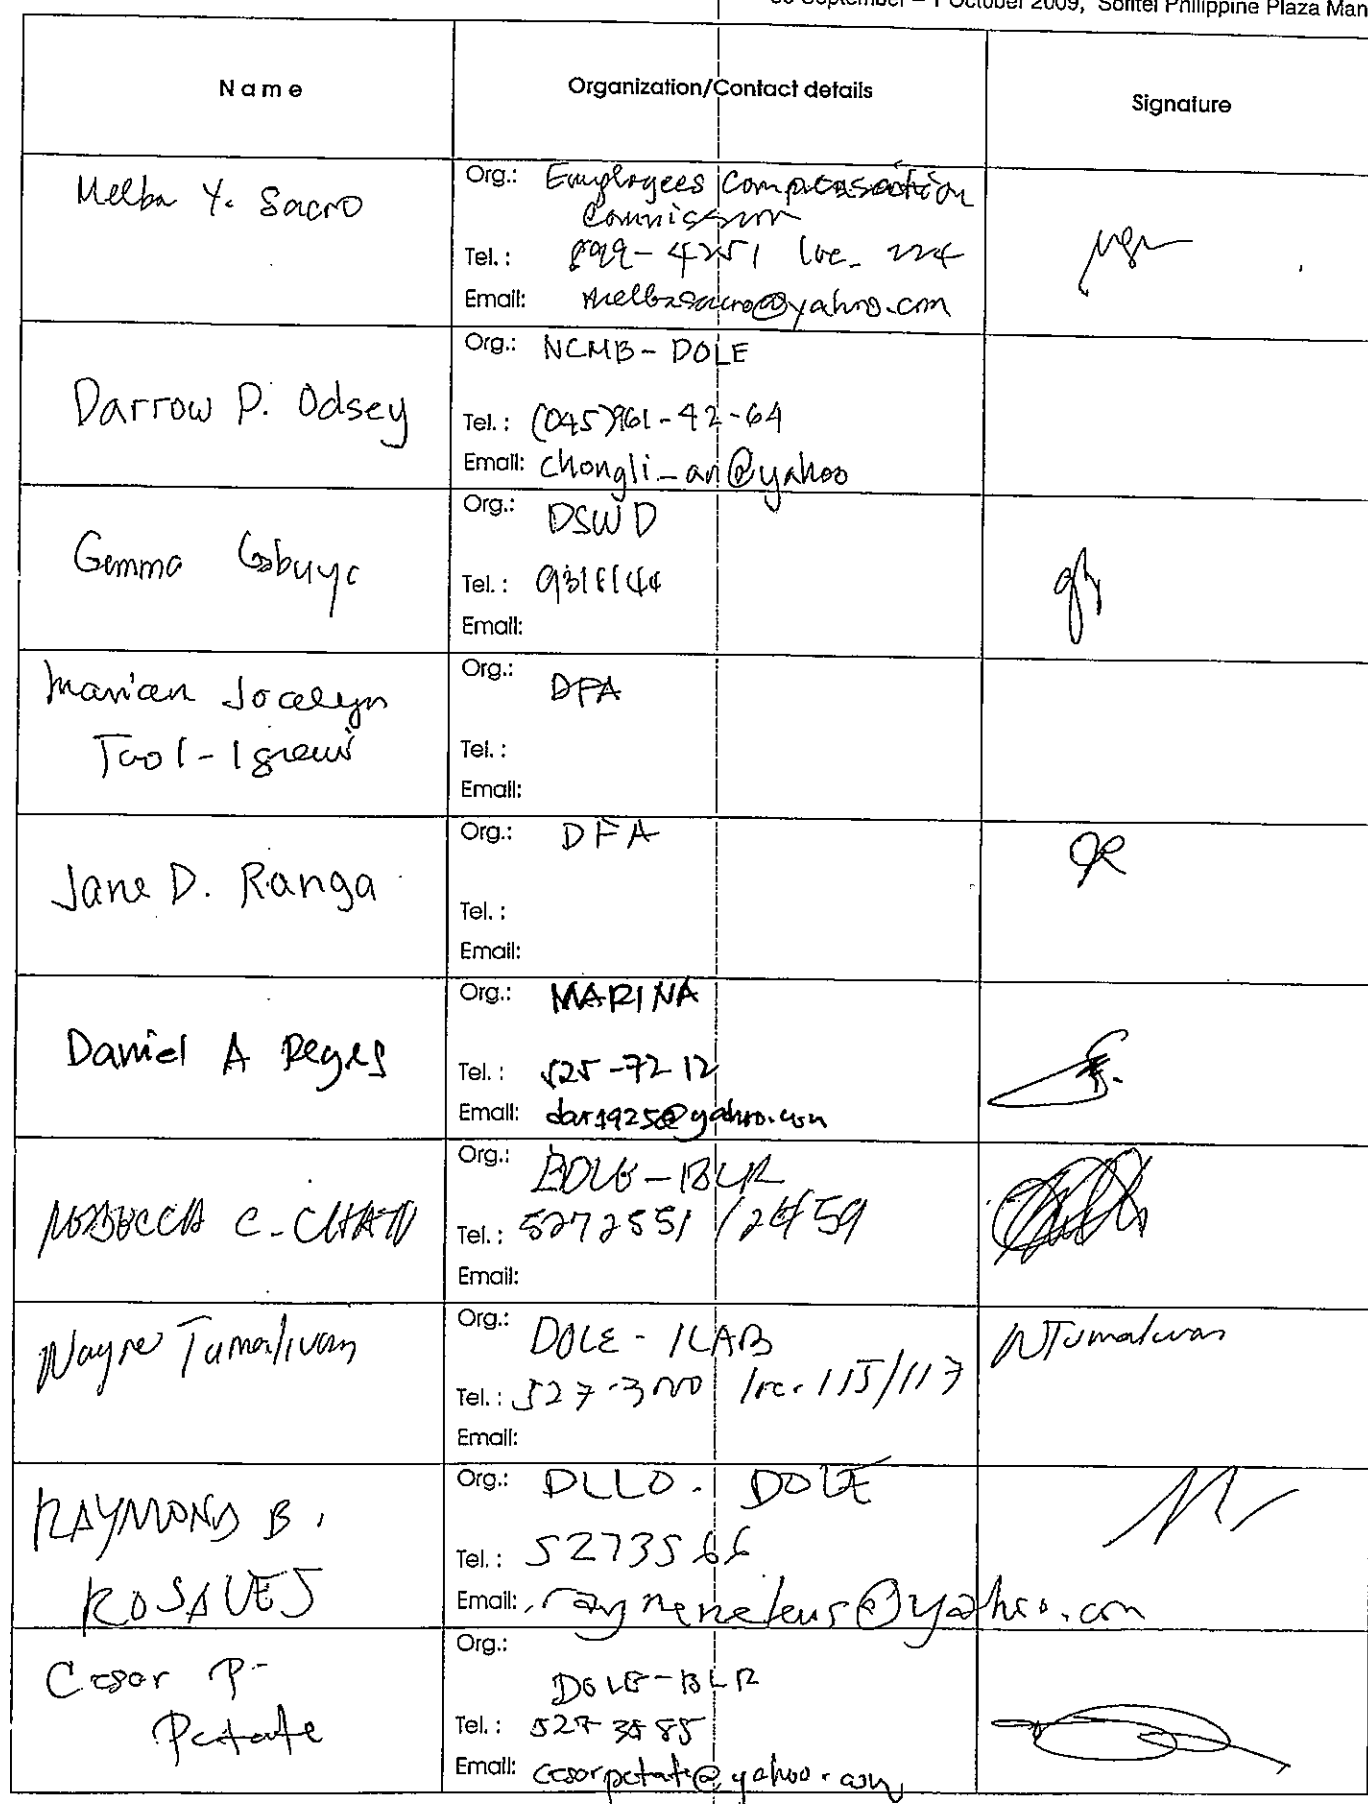 1 October 2009, Sofitel Philippine Plaza Man
Name
Organization/Contact details
Signature
Melba Y. Sacro
Org.: Employees Compensation
Commission
Tel.: 899-4251 loc. 224
Email: melbasacro@yahoo.com
Darrow P. Odsey
Org.: NCMB-DOLE
Tel.: (045)961-42-64
Email: chongli_an@yahoo
Gemma Gabuya
Org.: DSWD
Tel.: 9318144
Email:
Marian Jocelyn
Org.: DFA
Tel.:
Email:
Jane D. Ranga
Org.: DFA
Tel.:
Email:
Daniel A Reyes
Org.: MARINA
Tel.: 525-72 12
Email: dar1925@yahoo.com
REBECCA C. CHATO
Org.: DOLE-BLR
Tel.: 5272551 /
Email:
Tumaliuan
Org.: DOLE - ILAB
Tel.: 527-3000 loc. 115/117
Email:
NTumaliuan
RAYMOND B.
Org.: DLLO. DOLE
Tel.: 5273566
Email: @yahoo.com
Cesar P.
Petate
Org.:
DOLE-BLR
Tel.: 527 3585
Email: cesarpetate@yahoo.com